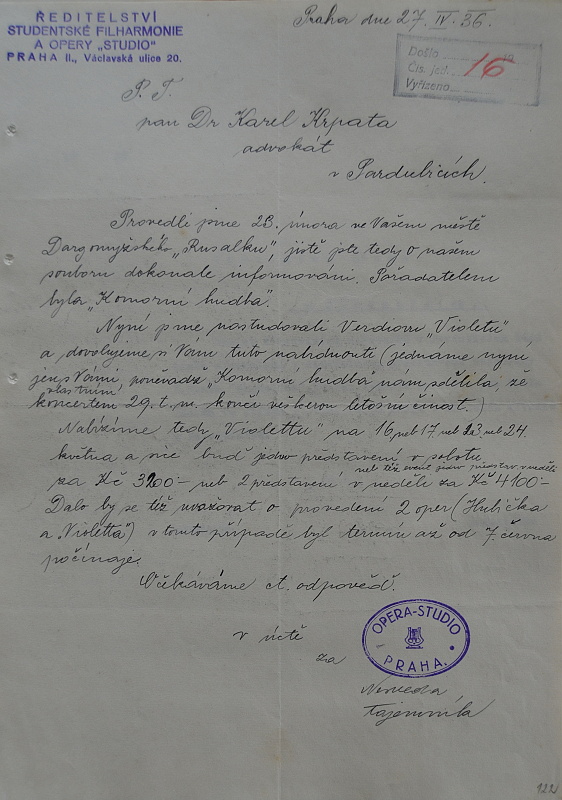 ŘEDITELSTVÍ
STUDENTSKÉ FILHARMONIE
A OPERY „STUDIO"
PRAHA II., Václavská ulice 20.
Praha dne 27. IV. 36.
Došlo 19
Čís. jed. 16
Vyřízeno
P. T.
pan Dr Karel Krpata
advokát
v Pardubicích.
Provedli jsme 23. února ve Vašem městě
Dargomyžského „Rusalku", jistě jste tedy o našem
souboru dokonale informováni. Pořadatelem
byla „Komorní hudba".
Nyní jsme nastudovali Verdiovu „Violetu"
a dovolujeme si Vám tuto nabídnouti (jednáme nyní
jen s Vámi, poněvadž „Komorní hudba" nám sdělila, že
vlastním
koncertem 29. t. m. končí veškerou letošní činost.)
Nabízíme tedy „Violettu" na 16. neb 17. neb 23. neb 24.
května a sice buď jedno představení v sobotu
neb též jedno představ. v neděli
za Kč 3200- neb 2 představení v neděli za Kč 4100-
Dalo by se též uvažovat o provedení 2 oper (Hubička
a „Violetta") v tomto případě byl termín až od 7. června
počínaje.
Očekáváme ct. odpověď.
v úctě
za
OPERA-STUDIO
PRAHA.
122